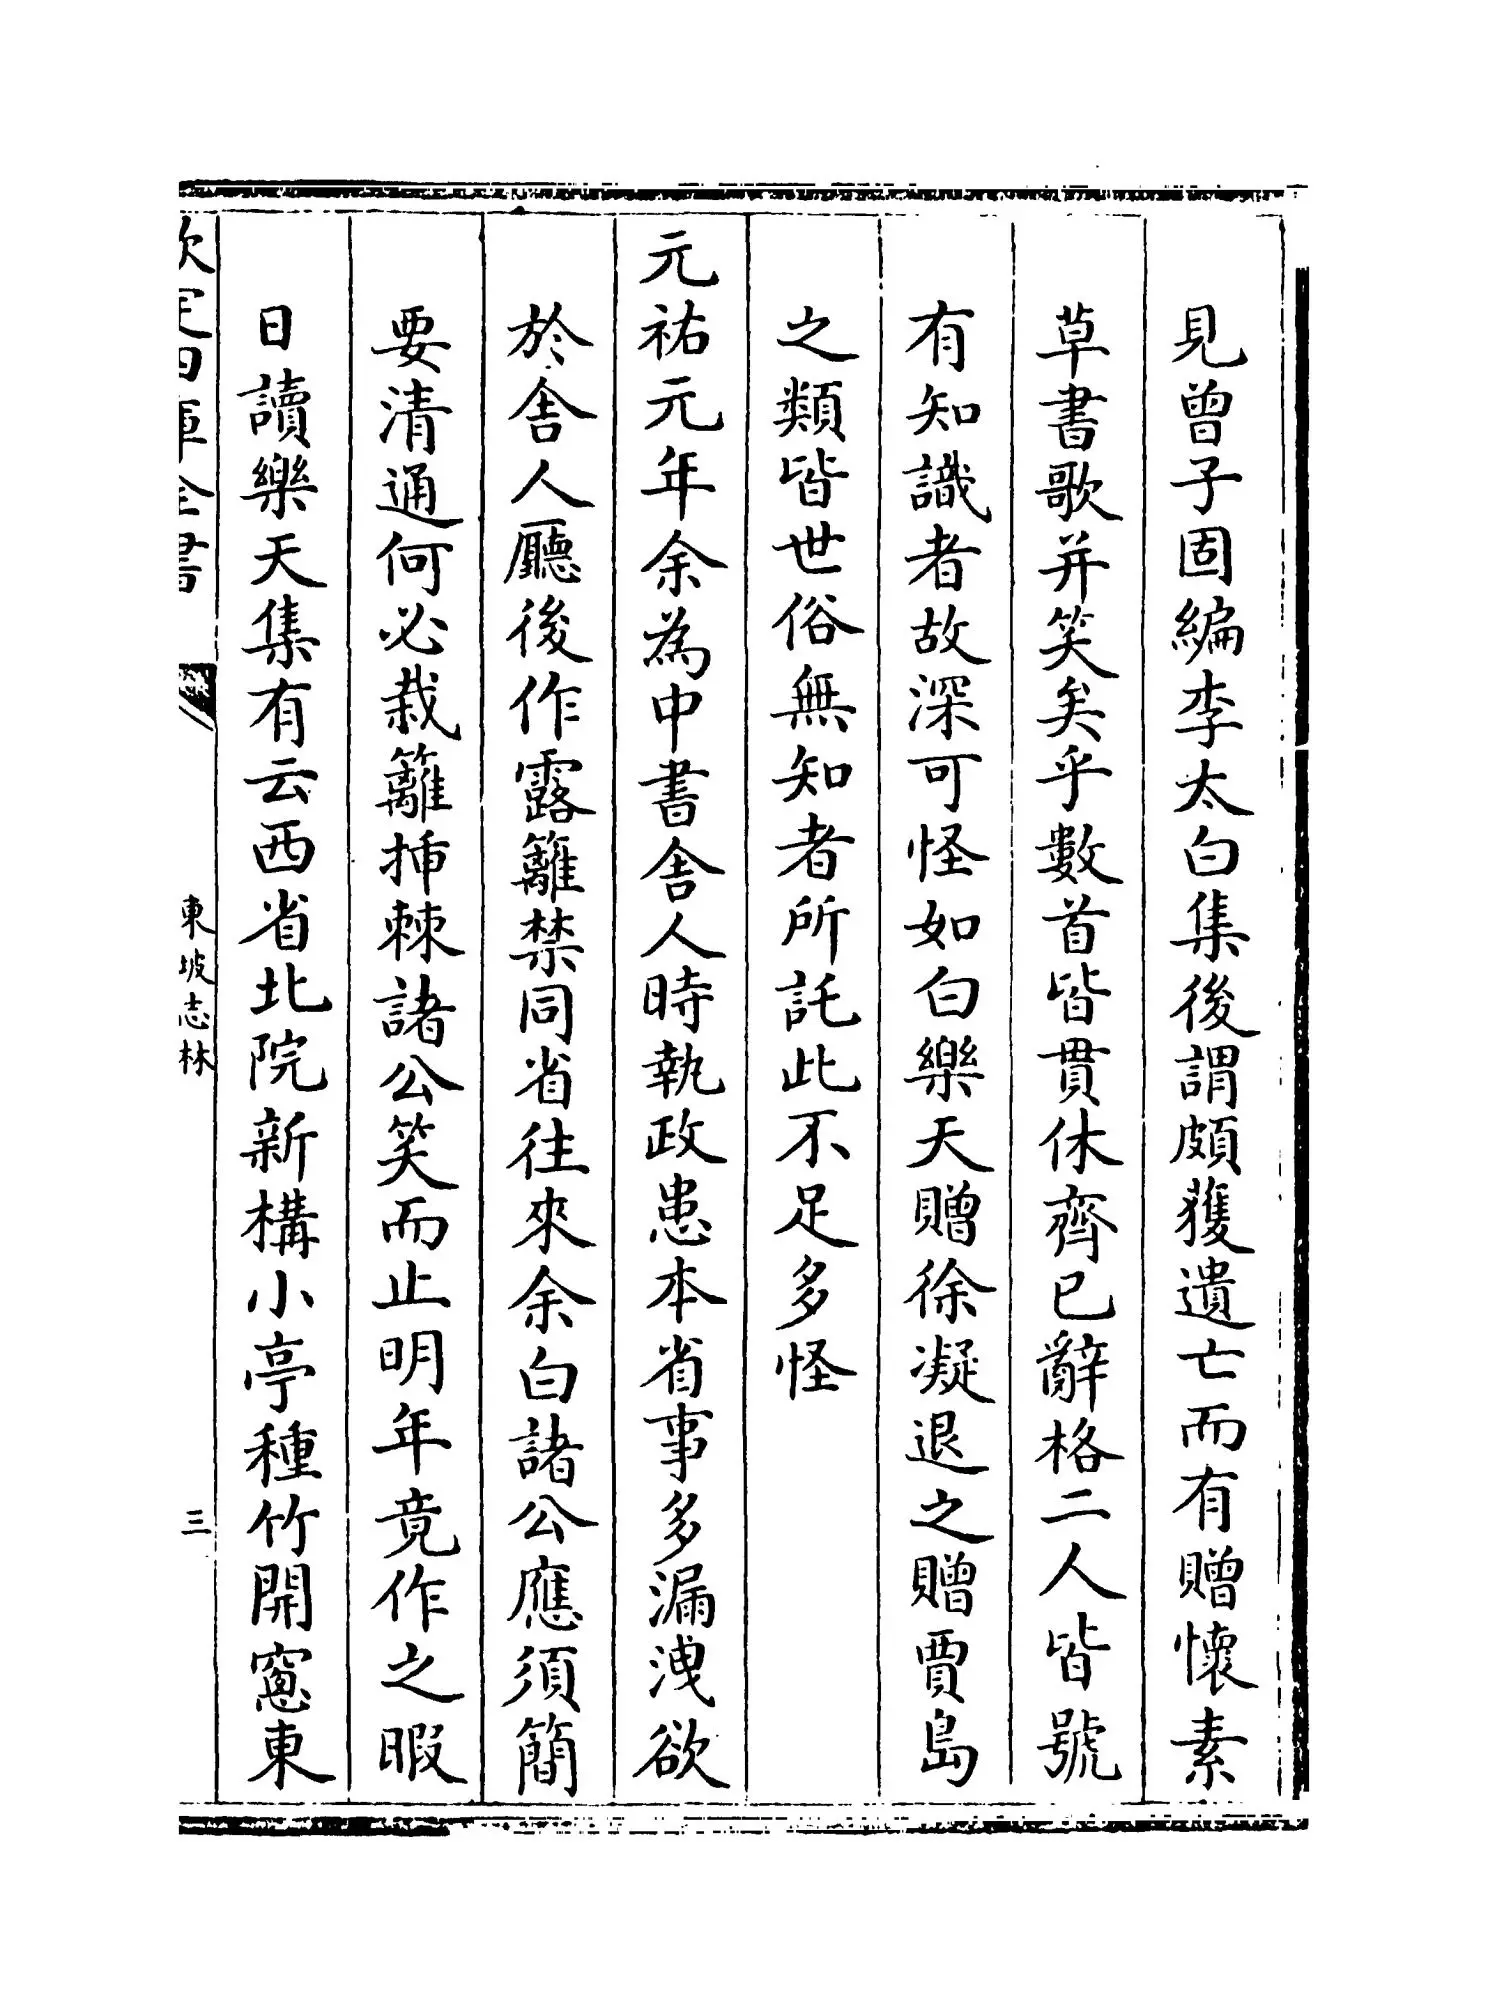 見曾子固編李太白集後謂頗獲遺亡而有贈懷素
草書歌并笑矣乎數首皆貫休齊已辭格二人皆號
有知識者故深可怪如白樂天贈徐凝退之贈賈島
之類皆世俗無知者所託此不足多怪
元祐元年余為中書舍人時執政患本省事多漏洩欲
於舍人廳後作露籬禁同省往來余白諸公應須簡
要清通何必栽籬揷棘諸公笑而止明年竟作之暇
日讀樂天集有云西省北院新構小亭種竹開窻東
欽定四庫全書
東坡志林
三